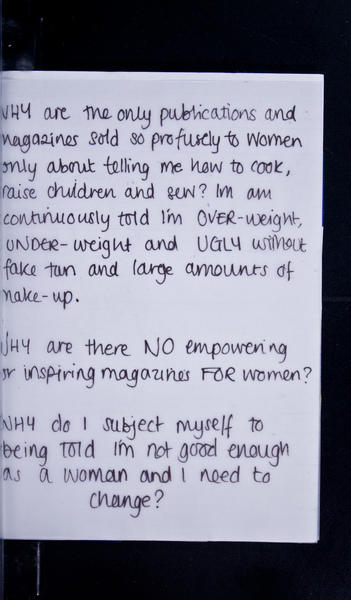 WHY are the only publications and
magazines sold so profusely to women
only about telling me how to cook,
raise children and sew? Im am
continuously told I'm OVER-weight,
UNDER-weight and UGLY without
fake tan and large amounts of
make-up.
WHY are there NO empowering
or inspiring magazines FOR women?
WHY do I subject myself to
being TOld I'm not good enough
as a woman and I need to
change?